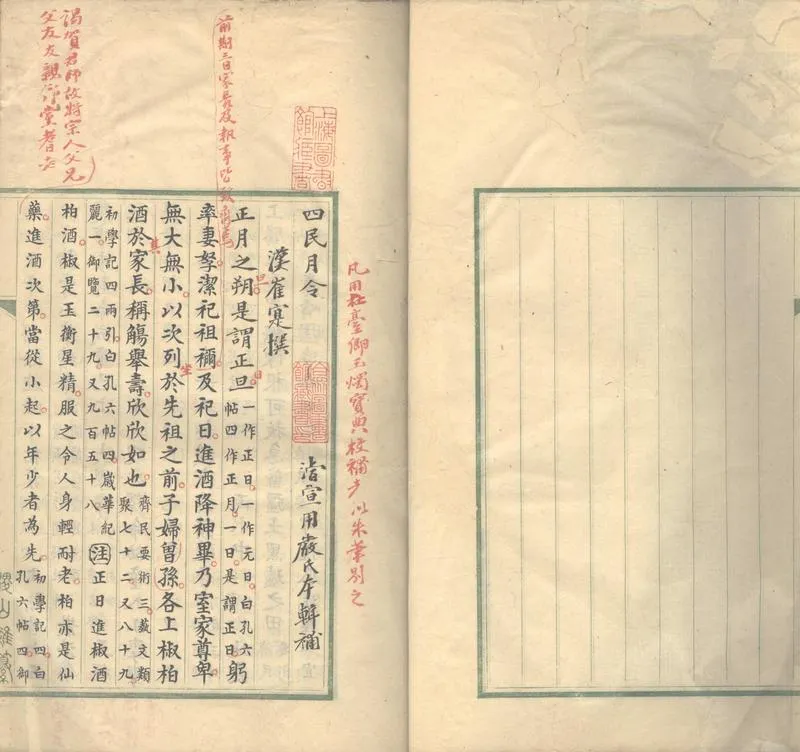 上海圖書館藏書
凡用杜臺卿玉燭寶典校補者以朱筆別之
四民月令
濬宣用嚴氏本輯補
漢崔寔撰
前期三日家長及執事皆致齊焉
正月之朔是謂正旦一作正日一作元日白孔六帖四作正月一日是謂正日躬
率妻孥潔祀祖禰及祀日進酒降神畢乃室家尊卑
無大無小以次列於先祖之前子婦曾孫各上椒柏
酒於家長稱觴舉壽欣欣如也齊民要術三藝文類聚七十二又八十九
初學記四兩引白孔六帖四歲華紀麗一御覽二十九又九百五十八注正日進椒酒
柏酒椒是玉衡星精服之令人身輕耐老柏亦是仙
藥進酒次第當從小起以年少者為先初學記四白孔六帖四御
謁賀君師故將宗人父兄
父友友親鄉黨耆老